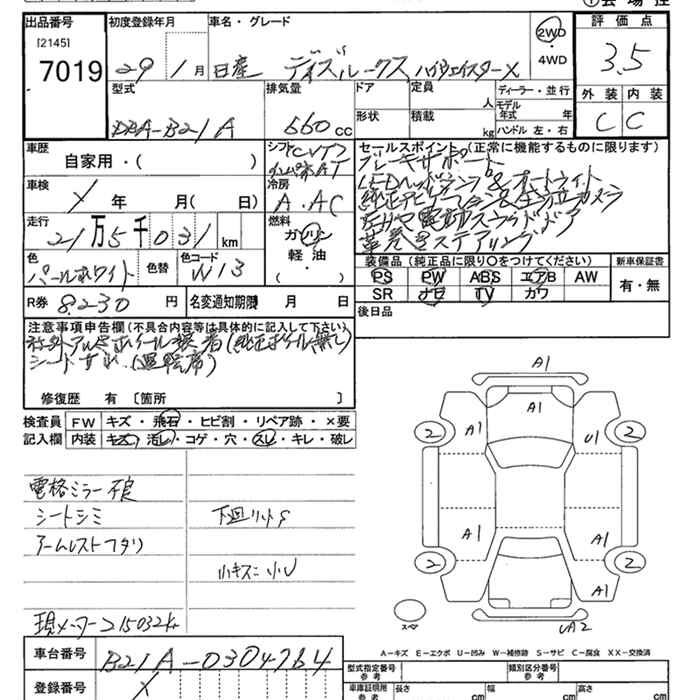 出品番号
[2145]
7019
初度登録年月
29 1月
車名・グレード
日産 デイズルークス ハイウェイスターX
2WD
・
4WD
評価点
3.5
外装 内装
C C
型式
DBA-B21A
排気量
660cc
ドア
形状
定員
人
積載
kg
ディーラー・並行
モデル
年式 年
ハンドル 左・右
車歴
自家用・( )
シフト
CVT
冷房
A.AC
セールスポイント(正常に機能するものに限ります)
ブレーキサポート
革巻きステアリング
車検
年 月( 日)
走行
21万5千031km
燃料
ガソリン
軽油
・( )
色
パールホワイト
色替
色コード
W13
装備品(純正品に限り○をつけてください)
PS PW ABS エアB AW
SR ナビ TV カワ
新車保証書
有・無
R券 8230円
名変通知期限 月 日
後日品
注意事項申告欄(不具合内容等は具体的に記入して下さい)
社外アルミホイール装着(純正ホイール無し)
シートすれ(運転席)
修復歴 有〔箇所 〕
検査員
記入欄
FW キズ・飛石・ヒビ割・リペア跡・×要
内装 キズ・汚レ・コゲ・穴・スレ・キレ・破レ
電格ミラー不良
シートシミ
下廻りサビS
アームレストフタリ
小キズ小U
現メーター215032km
A1
A1
A1
U1
2 2
A1
A1
2 2
A1
UA2
スペア
A-キズ E-エクボ U-凹み W-補修跡 S-サビ C-腐食 XX-交換済
車台番号
B21A-0304784
登録番号
型式指定番号
参考
類別区分番号
参考
車庫証明用
参考
長さ cm
幅 cm
高さ cm